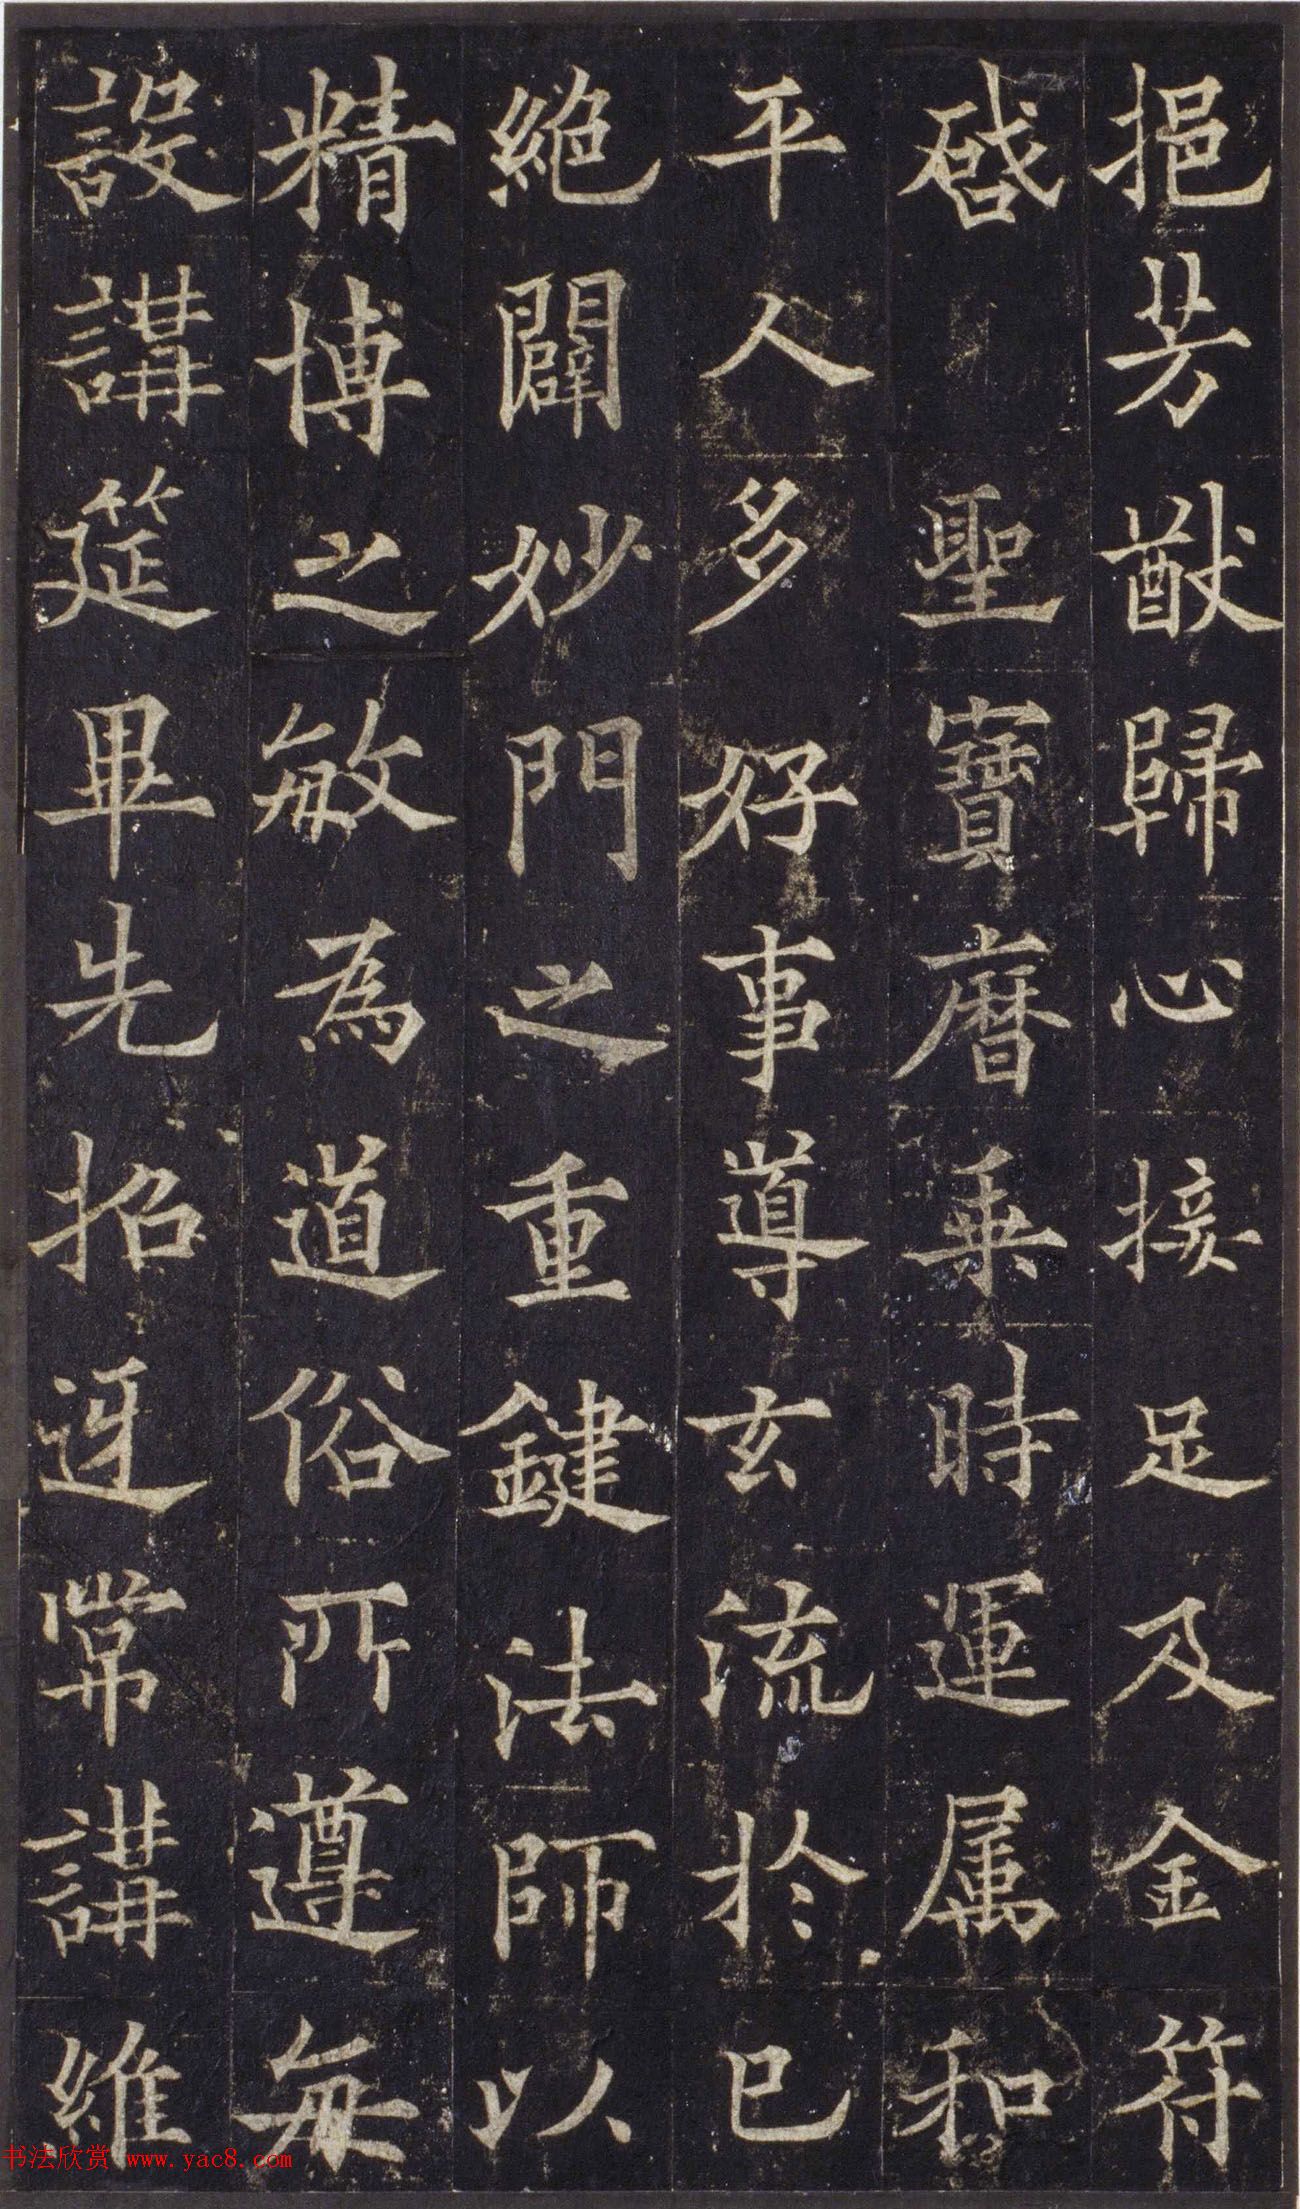 挹芳猷歸心接足及金符
啓聖寶曆乗時運属和
平人多好事導玄流於已
絶闢妙門之重鍵法師以
精博之敏為道俗所遵每
設講筵畢先招迓常講維
书法欣赏 www.yac8.com